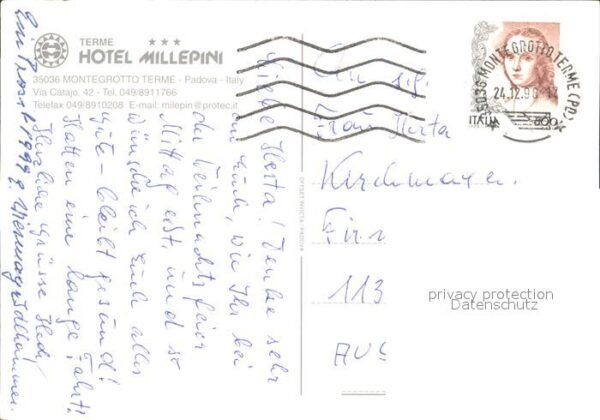 TERME ★★★
HOTEL MILLEPINI
35036 MONTEGROTTO TERME - Padova - Italy
Via Catajo, 42 - Tel. 049/8911766
Telefax 049/8910208 E-mail: milepin@protec.it
35036 MONTEGROTTO TERME (PD)
24.12.98
ITALIA 800
OFFSET INVICTA PADOVA
Liebe Herta! Denke sehr
an Euch, wie Ihr bei
der Weihnachtsfeier
Mittag esst, und so
wünsche ich Euch alles
Gute - bleibt gesund!
Hatten eine lange Fahrt!
Herzliche Grüsse
Ein Prosit 1999
An
Frau Herta
Kirchmayer
113
privacy protection
Datenschutz